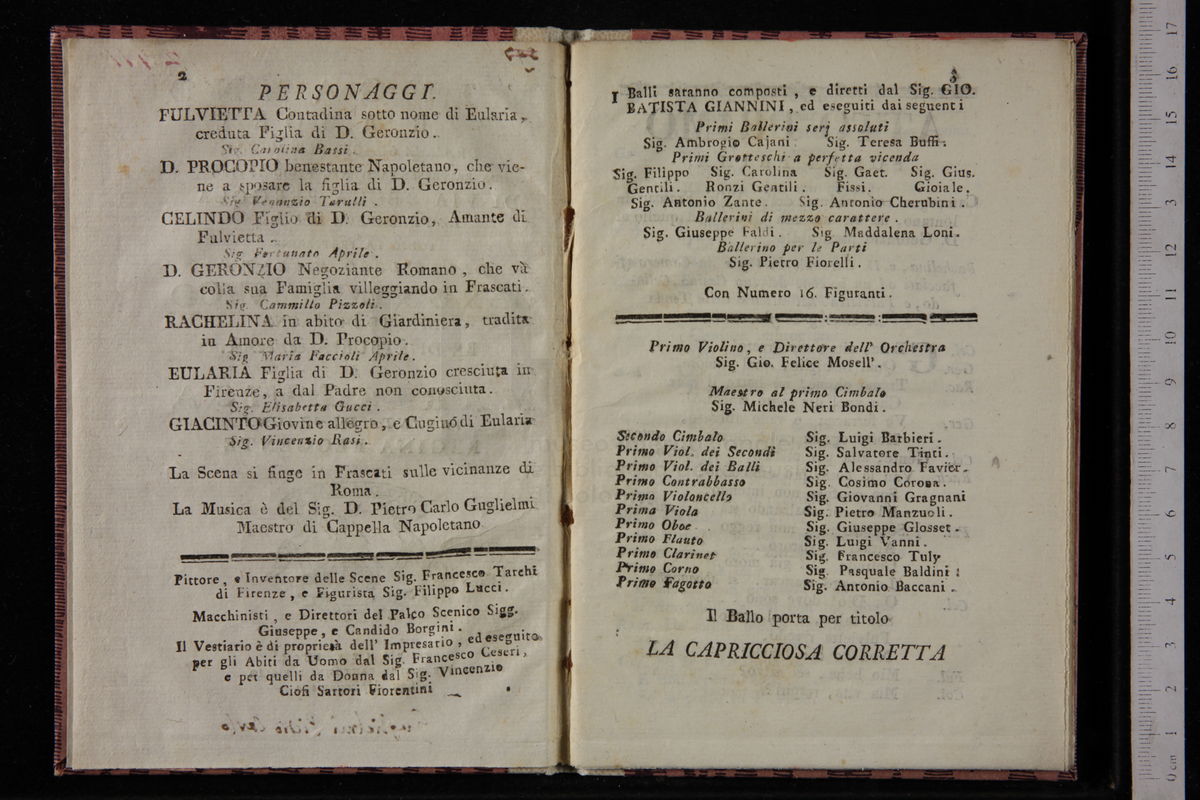 2
PERSONAGGI.
FULVIETTA Contadina sotto nome di Eularia,
creduta Figlia di D. Geronzio.
Sig. Carolina Bassi.
D. PROCOPIO benestante Napoletano, che vie-
ne a sposare la figlia di D. Geronzio.
Sig Venanzio Tarulli.
CELINDO Figlio di D. Geronzio, Amante di
Fulvietta.
Sig Fortunato Aprile.
D. GERONZIO Negoziante Romano, che và
colla sua Famiglia villeggiando in Frascati.
Sig. Cammillo Pizzoli.
RACHELINA in abito di Giardiniera, tradita
in Amore da D. Procopio.
Sig Maria Faccioli Aprile.
EULARIA Figlia di D. Geronzio cresciuta in
Firenze, a dal Padre non conosciuta.
Sig. Elisabetta Gucci.
GIACINTO Giovine allegro, e Cugino di Eularia
Sig. Vincenzio Rasi.
La Scena si finge in Frascati sulle vicinanze di
Roma.
La Musica è del Sig. D. Pietro Carlo Guglielmi
Maestro di Cappella Napoletano
Pittore, e Inventore delle Scene Sig. Francesco Tarchi
di Firenze, e Figurista Sig. Filippo Lucci.
Macchinisti, e Direttori del Palco Scenico Sigg.
Giuseppe, e Candido Borgini.
Il Vestiario è di proprietà dell' Impresario, ed eseguito
per gli Abiti da Uomo dal Sig. Francesco Ceseri,
e per quelli da Donna dal Sig. Vincenzio
Ciofi Sartori Fiorentini
3
I Balli saranno composti, e diretti dal Sig. GIO.
BATISTA GIANNINI, ed eseguiti dai seguenti
Primi Ballerini serj assoluti
Sig. Ambrogio Cajani. Sig. Teresa Buffi.
Primi Grotteschi a perfetta vicenda
Sig. Filippo Sig. Carolina Sig. Gaet. Sig. Gius.
Gentili. Ronzi Gentili. Fissi. Gioiale.
Sig. Antonio Zante. Sig. Antonio Cherubini.
Ballerini di mezzo carattere.
Sig. Giuseppe Faldi. Sig Maddalena Loni.
Ballerino per le Parti
Sig. Pietro Fiorelli.
Con Numero 16. Figuranti.
Primo Violino, e Direttore dell' Orchestra
Sig. Gio. Felice Mosell'.
Maestro al primo Cimbalo
Sig. Michele Neri Bondi.
Secondo Cimbalo Sig. Luigi Barbieri.
Primo Viol. dei Secondi Sig. Salvatore Tinti.
Primo Viol. dei Balli Sig. Alessandro Favier.
Primo Contrabbasso Sig. Cosimo Corona.
Primo Violoncello Sig. Giovanni Gragnani
Prima Viola Sig. Pietro Manzuoli.
Primo Oboe Sig. Giuseppe Glosset.
Primo Flauto Sig. Luigi Vanni.
Primo Clarinet Sig. Francesco Tuly
Primo Corno Sig. Pasquale Baldini.
Primo Fagotto Sig. Antonio Baccani.
Il Ballo porta per titolo
LA CAPRICCIOSA CORRETTA
0 cm 1 2 3 4 5 6 7 8 9 10 11 12 13 14 15 16 17